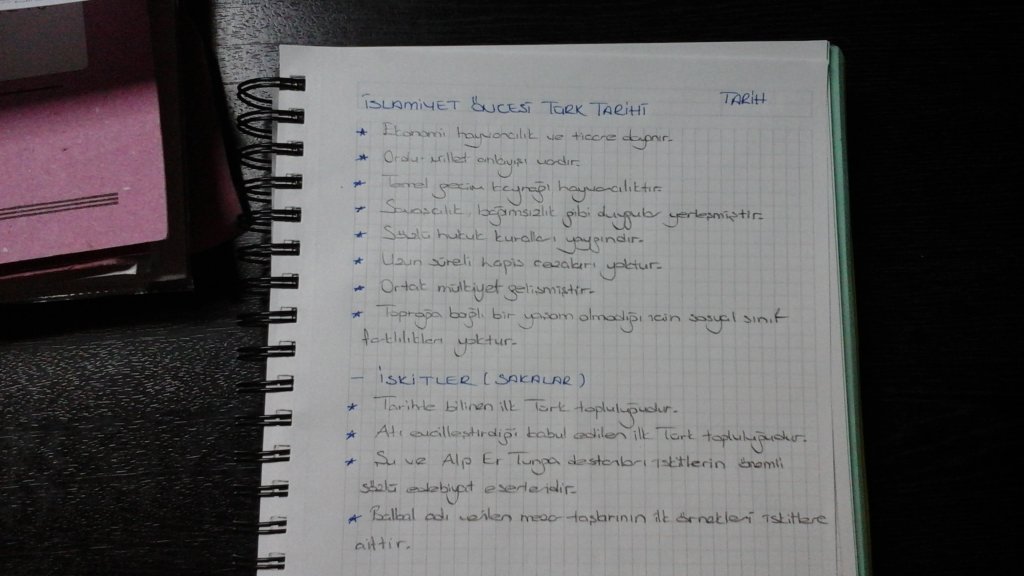 İSLAMİYET ÖNCESİ TÜRK TARİHİ
TARİH
* Ekonomi hayvancılık ve ticare dayanır.
* Ordu-millet anlayışı vardır.
* Temel geçim kaynağı hayvancılıktır.
* Savaşcılık, bağımsızlık gibi duygular yerleşmiştir.
* Sözlü hukuk kuralları yaygındır.
* Uzun süreli hapis cezaları yoktur.
* Ortak mülkiyet gelişmiştir.
* Toprağa bağlı bir yaşam olmadığı için sosyal sınıf
farklılıkları yoktur.
- İSKİTLER (SAKALAR)
* Tarihte bilinen ilk Türk topluluğudur.
* Atı evcilleştirdiği kabul edilen ilk Türk topluluğudur.
* Şu ve Alp Er Tunga destanları iskitlerin önemli
sözlü edebiyat eserleridir.
* Balbal adı verilen mezar taşlarının ilk örnekleri iskitlere
aittir.